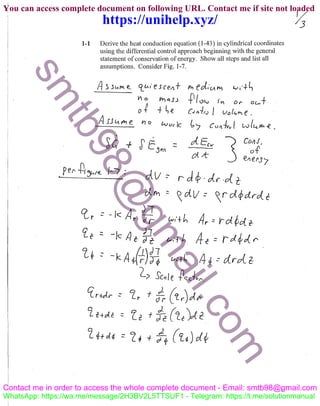 You can access complete document on following URL. Contact me if site not loaded
https://unihelp.xyz/
1/3
1-1 Derive the heat conduction equation (1-43) in cylindrical coordinates
using the differential control approach beginning with the general
statement of conservation of energy. Show all steps and list all
assumptions. Consider Fig. 1-7.
Assume quiescent medium with
no mass flow in or out
of the control volume.
Assume no work by control volume.
δQ̇ + δĖgen = dEcv/dt } Cons. of energy
per figure 1-7: dV = r dϕ·dr·dz
dm = ρdV = ρrdϕdrdz
qr = -kAr ∂T/∂r with Ar = rdϕdz
qz = -kAz ∂T/∂z with Az = rdϕdr
qϕ = -kAϕ(1/r)∂T/∂ϕ with Aϕ = drdz
↳ Scale factor
qr+dr = qr + ∂/∂r (qr)dr
qz+dz = qz + ∂/∂z (qz)dz
qϕ+dϕ = qϕ + ∂/∂ϕ (qϕ)dϕ
smtb98@gmail.com
Contact me in order to access the whole complete document - Email: smtb98@gmail.com
WhatsApp: https://wa.me/message/2H3BV2L5TTSUF1 - Telegram: https://t.me/solutionmanual